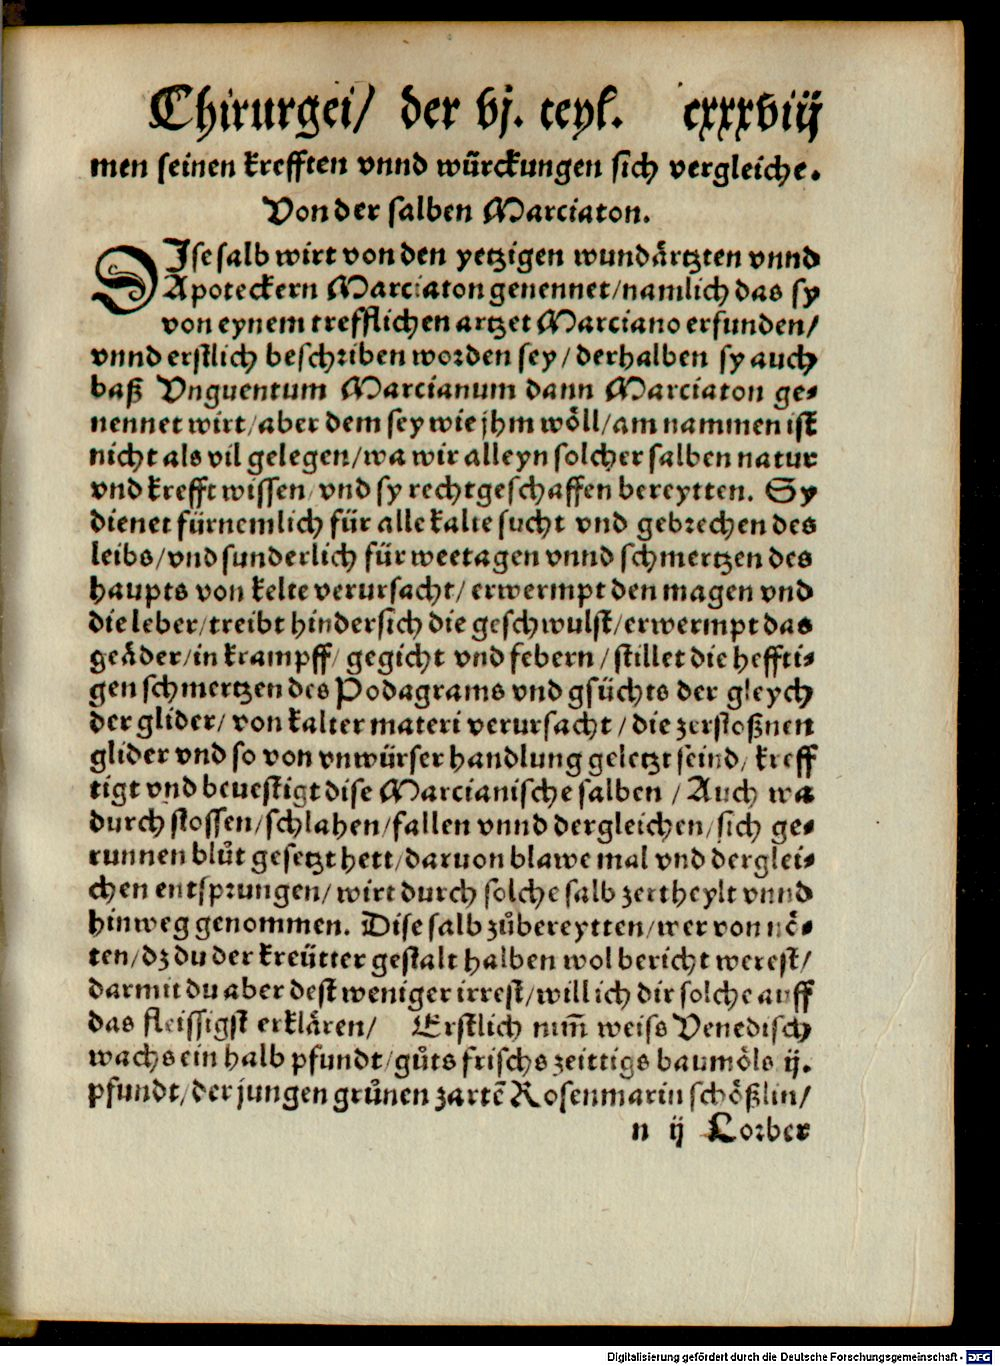 Chirurgei/ der vj. teyl. cxxxviij
men seinen krefften vnnd würckungen sich vergleiche.
Von der salben Marciaton.
DIse salb wirt von den yetzigen wundärtzten vnnd
Apoteckern Marciaton genennet/namlich das sy
von eynem trefflichen artzet Marciano erfunden/
vnnd erstlich beschriben worden sey/derhalben sy auch
baß Vnguentum Marcianum dann Marciaton ge-
nennet wirt/aber dem sey wie jhm wöll/am nammen ist
nicht als vil gelegen/wa wir alleyn solcher salben natur
vnd krefft wissen/vnd sy rechtgeschaffen bereytten. Sy
dienet fürnemlich für alle kalte sucht vnd gebrechen des
leibs/vnd sunderlich für weetagen vnnd schmertzen des
haupts von kelte verursacht/erwermpt den magen vnd
die leber/treibt hindersich die geschwulst/erwermpt das
geäder/in krampff/gegicht vnd febern/stillet die heffti-
gen schmertzen des Podagrams vnd gsüchts der gleych
der glider/von kalter materi verursacht/die zerstoßnen
glider vnd so von vnwürser handlung geletzt seind/kreff
tigt vnd beuestigt dise Marcianische salben/Auch wa
durch stossen/schlahen/fallen vnnd dergleichen/sich ge-
runnen blůt gesetzt hett/daruon blawe mal vnd derglei-
chen entsprungen/wirt durch solche salb zertheylt vnnd
hinweg genommen. Dise salb zůbereytten/wer von nö-
ten/dz du der kreütter gestalt halben wol bericht werest/
darmit du aber dest weniger irrest/will ich dir solche auff
das fleissigst erklären/ Erstlich nim̃ weiss Venedisch
wachs ein halb pfundt/gůts frischs zeittigs baumöls ij.
pfundt/der jungen grůnen zartẽ Rosenmarin schößlin/
n ij Lorber
Digitalisierung gefördert durch die Deutsche Forschungsgemeinschaft - DFG